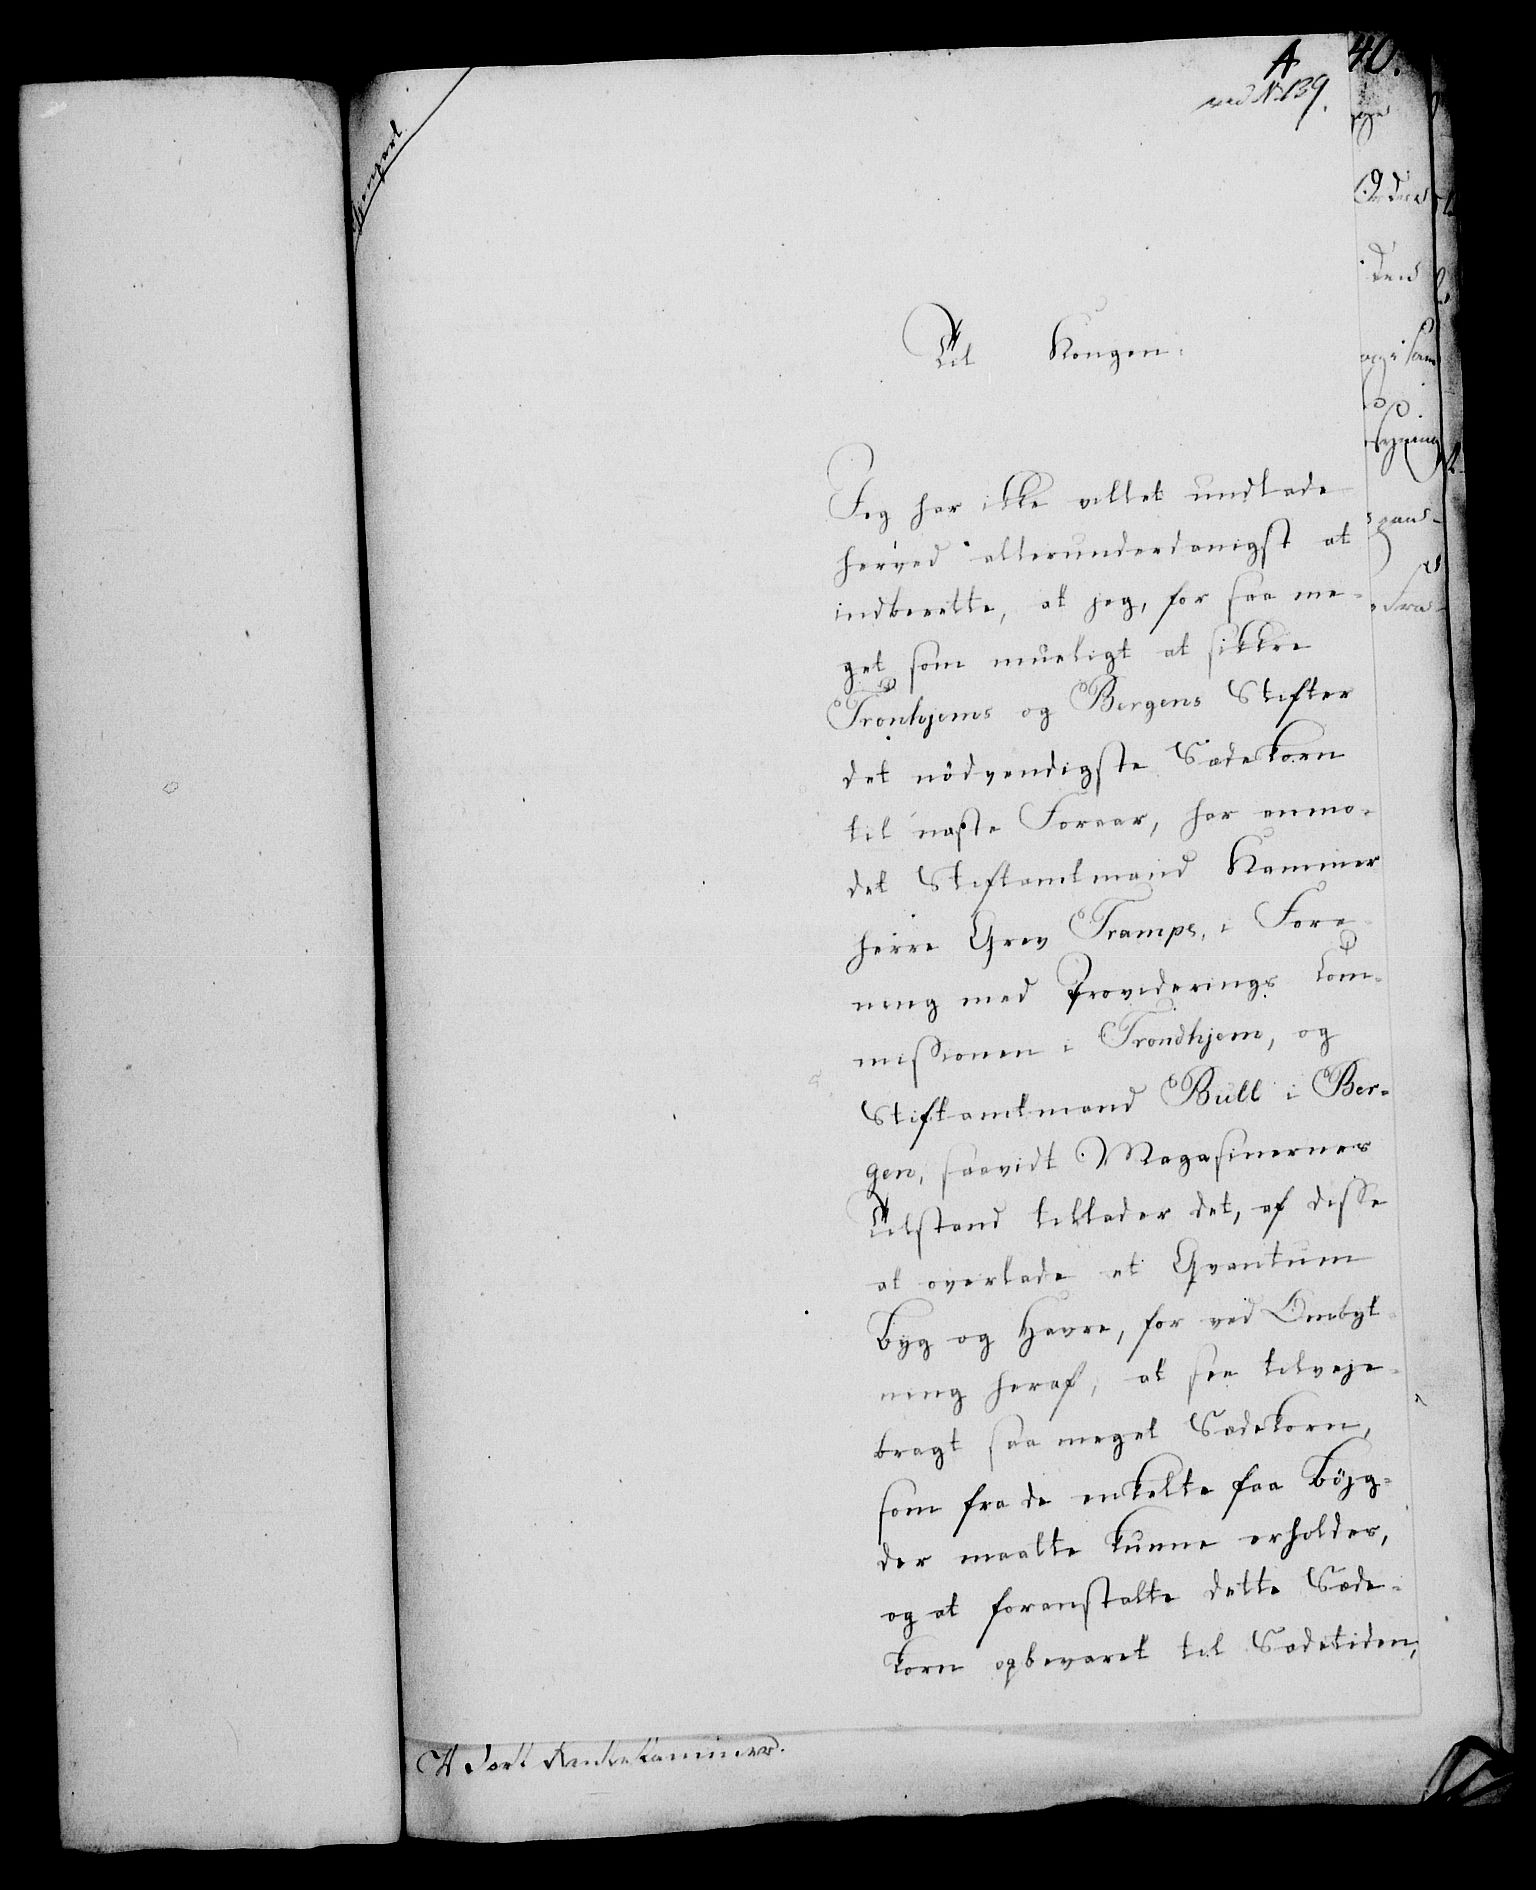 A 40.
ved N. 139.
Gienpart
Til Kongen.
Jeg har ikke villet undlade
herved allerunderdanigst at
indberette, at jeg, for saa me-
get som mueligt at sikkre
Tronhjems og Bergens Stifter
det nödvendigste Sædekorn
til næste Foraar, har anmo-
det Stiftamtmand Kammer
herre Grev Tramps, i Fore
ning med Provideringscom-
missionen i Trondhjem, og
Stiftamtmand Bull i Ber-
gen, saavidt Magasinernes
Tilstand tillader det, af disse
at overlade et Qvantum
Byg og Havre, for ved Ombyt-
ning heraf, at see tilveje-
bragt saa meget Sædekorn,
som fra de enkelte faa Böjg-
der maatte kunne erholdes,
og at foranstalte dette Sæde-
korn opbevaret til Sædetiden,
Rentekammer.